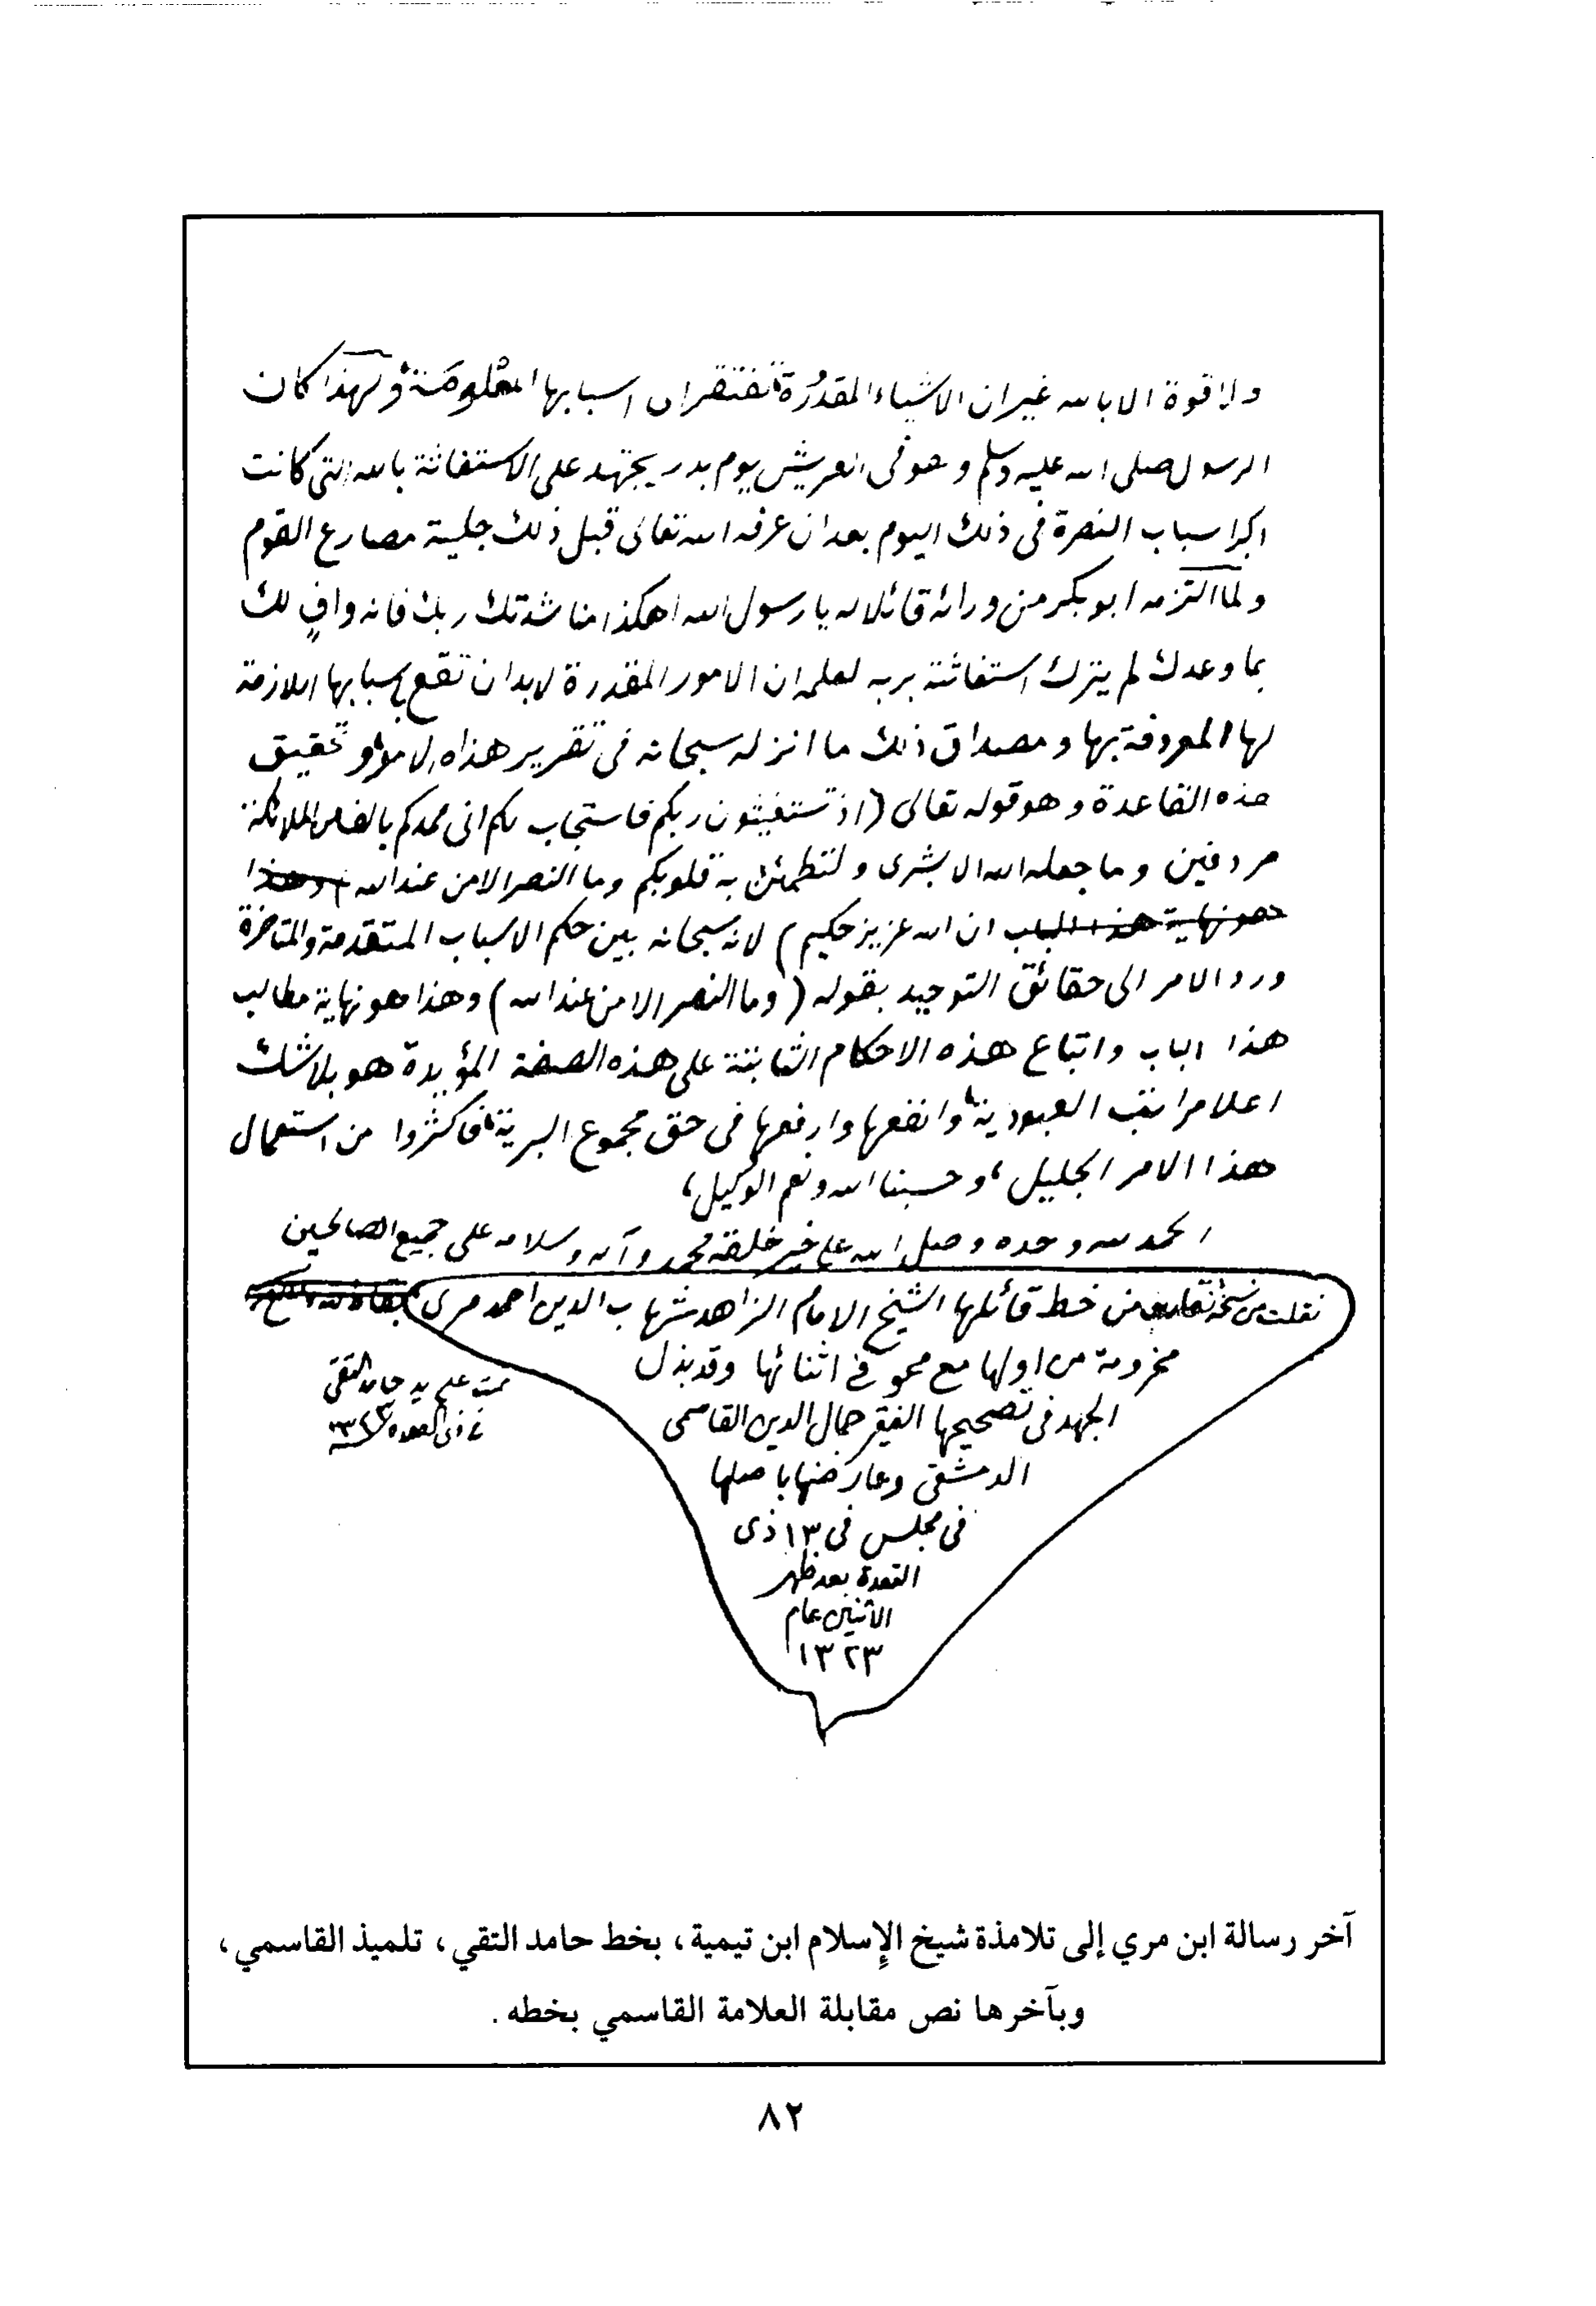 ولا قوة الا بالله غير ان الاشياء المقدُرة تفتقر الى اسبابها المعْلومَة، ولهذا كان
الرسول صلى الله عليه وسلم وهو في العريش يوم بدر يجتهد على الاستغاثة بالله التي كانت
اكبر اسباب النصرة في ذلك اليوم بعد ان عرفه الله تعالى قبل ذلك جلية مصارع القوم
ولما التزمه ابو بكر من ورائه قائلا له يا رسول الله اهكذا مناشدتك ربك فانه وافٍ لك
بما وعدك لم يترك استغاثته بربه لعلمه ان الامور المقدرة لابد ان تقع باسبابها اللازمة
لها المعروفة بها ومصداق ذلك ما انزله سبحانه في تقرير هذاه الامور وتحقيق
هذه القاعدة وهو قوله تعالى (اذ تستغيثون ربكم فاستجاب لكم انى ممدكم بالف من الملائكة
مردفين وما جعله الله الا بشرى ولتطمئن به قلوبكم وما النصر الا من عند الله) وهذا
هو نهاية هذا الباب ان الله عزيز حكيم) لانه سبحانه بين حكم الاسباب المتقدمة والمتاخرة
ورد الامر الى حقائق التوحيد بقوله (وما النصر الا من عند الله) وهذا هو نهاية مطالب
هذا الباب واتباع هذه الاحكام الثابتة على هذه الصفة المؤيدة هو بلا شك
اعلا مراتب العبودية، وانفعها وارفعها في حق مجموع البرية، فاكثروا من استعمال
هذا الامر الجليل، وحسبنا الله ونعم الوكيل،
الحمد لله وحده وصلى الله على خير خلقه محمد وآله وسلامه على جميع الصالحين
نقلت من نسخة نقلت من خط قائلها الشيخ الامام الزاهد شهاب الدين احمد مرى
مخرومة من اولها مع محو في اثنائها وقد بذل
الجهد في تصحيحها الفقير جمال الدين القاسمى
الدمشقى وعارضها باصلها
فى مجلس فى ١٣ ذى
القعدة بعد ظهر
الاثنين عام
١٣٢٣
تمت على يد حامد التقى
في ذى القعدة سنة ١٣٢٣
آخر رسالة ابن مري إلى تلامذة شيخ الإسلام ابن تيمية، بخط حامد التقي، تلميذ القاسمي،
وبآخرها نص مقابلة العلامة القاسمي بخطه.
٨٢